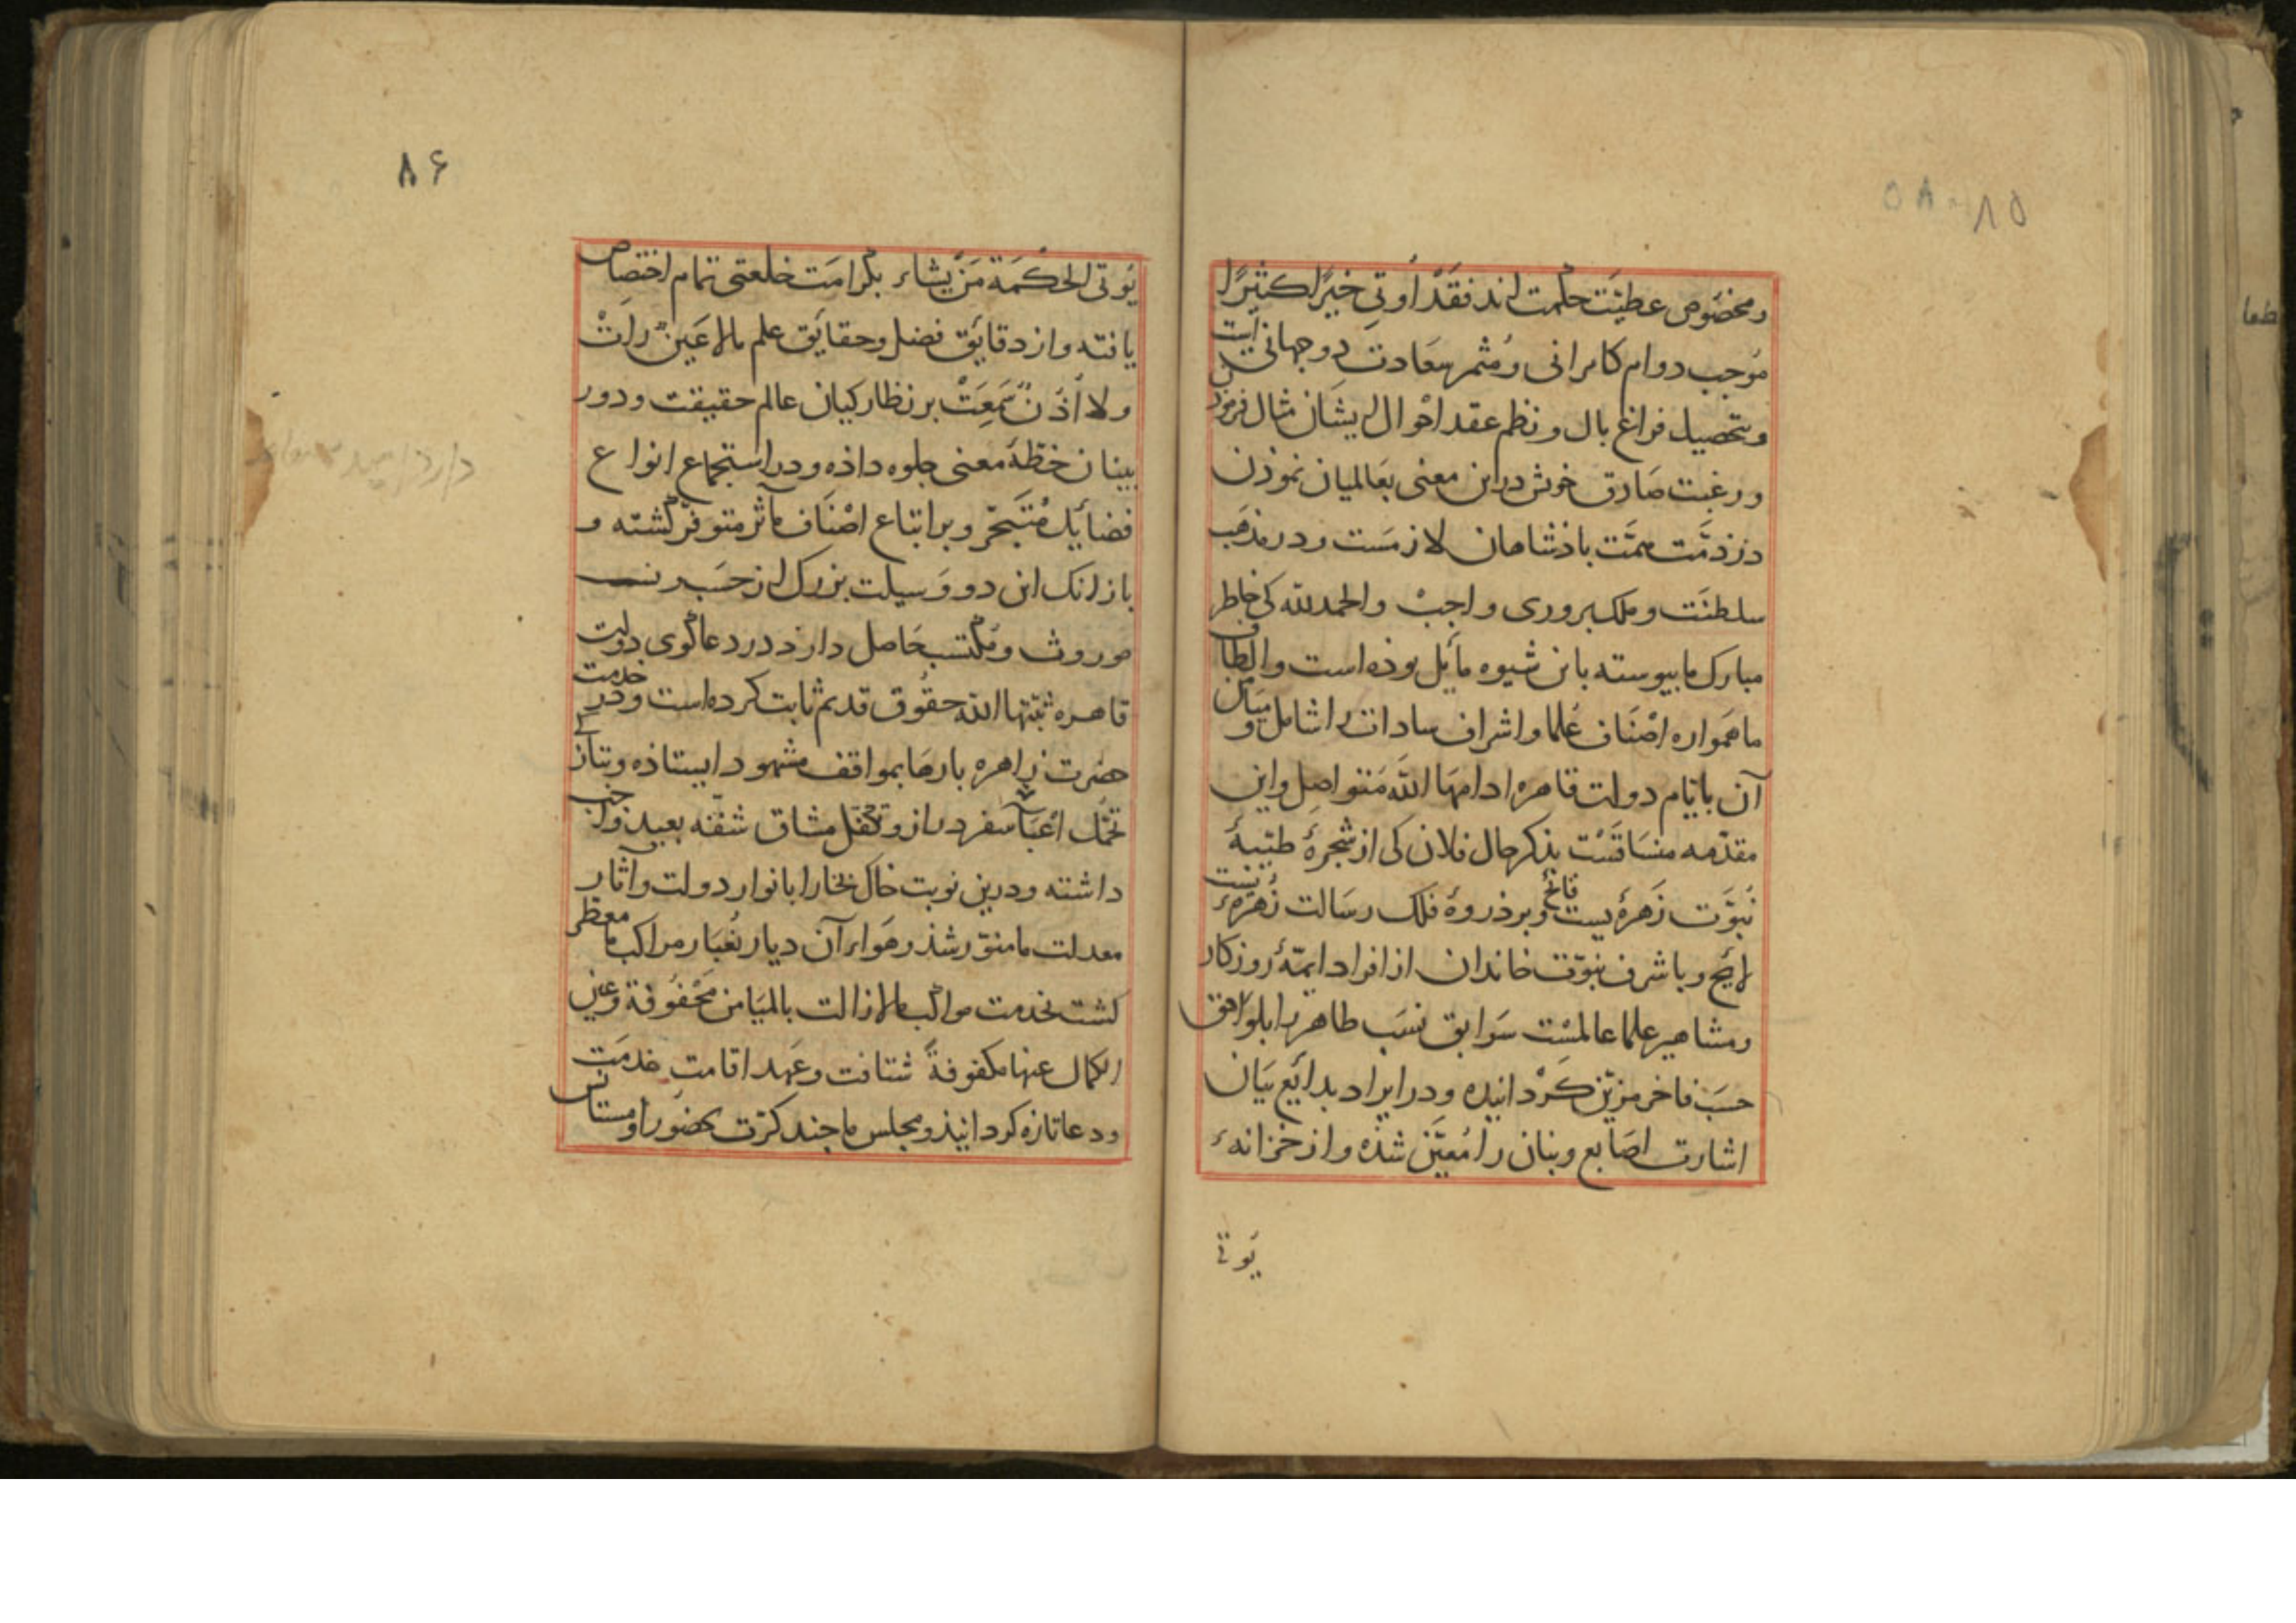 ۸۵
و مخصوص عطیّت حکمت اند فقد أوتي خیرًا کثیرًا
مُوجب دوام کامرانی و مُثمر سعادت دو جهانی است
و بتحصیل فراغ بال و نظم عقد احوال ایشان مثال فرموذن
و رغبت صادق خوش در این معنی بعالمیان نموذن
در ذمّت همّت باذشاهان لازمست و در مذهب
سلطنت و ملک پروری واجب و الحمد لله کی خاطر
مبارک ما بیوسته باین شیوه مایل بوذه است و الطاف
ما همواره اصناف علما و اشراف سادات را شامل و میامن
آن بایّام دولت قاهره ادامها الله متواصل و این
مقدّمه منساقست بذکر حال فلان کی از شجرهٔ طیّبهٔ
نبوّت زهرهٔ یست فایح و بر ذروهٔ فلک رسالت زُهرهٔ یست
لایح و با شرف نبوّت خاندان از افراد ایمّهٔ روزکار
و مشاهیر علما عالمست سوابق نسب طاهر را بلواحق
حسب فاخر مزیّن کردانیده و در ایراد بدایع بیان
اشارت اصابع و بنان را مُعیّن شذه و از خزانهٔ
یوتی
۸۶
یوتی الحکمة من یشاء بکرامت خلعتی تمام اختصاص
یافته و از دقایق فضل و حقایق علم ما لا عینٌ رأت
ولا أذنٌ سمعت بر نظارکیان عالم حقیقت و دور
بینان خطّهٔ معنی جلوه داذه و در استجماع انواع
فضایل متبحّر و بر اتباع اصناف مآثر متوفّر کشته و
باز انک این دو وسیلت بزرک از حسب و نسب
موروث و مکتسب حاصل دارد در دعاکوی دولت
قاهره ثبّتها الله حقوق قدیم ثابت کرده است و در خدمت
حضرت زاهره بارها بمواقف مشهود ایستاذه و بتازکی
تحمّل اعباء سفر دراز و تکفّل مشاق شقّه بعید واجب
داشته و درین نوبت خاک بخارا بانوار دولت و آثار
معدلت ما منوّر شذ و هواء آن دیار بغبار مراکب ما معطّر
کشت بخدمت مواکب ما لا زالت بالمیامن محفوفة و عین
الکمال عنها مکفوفةً شتافت و عهد اقامت خدمت
و دعا تازه کردانیذ و بمجلس ما جند کرّت بحضور او مستأنس